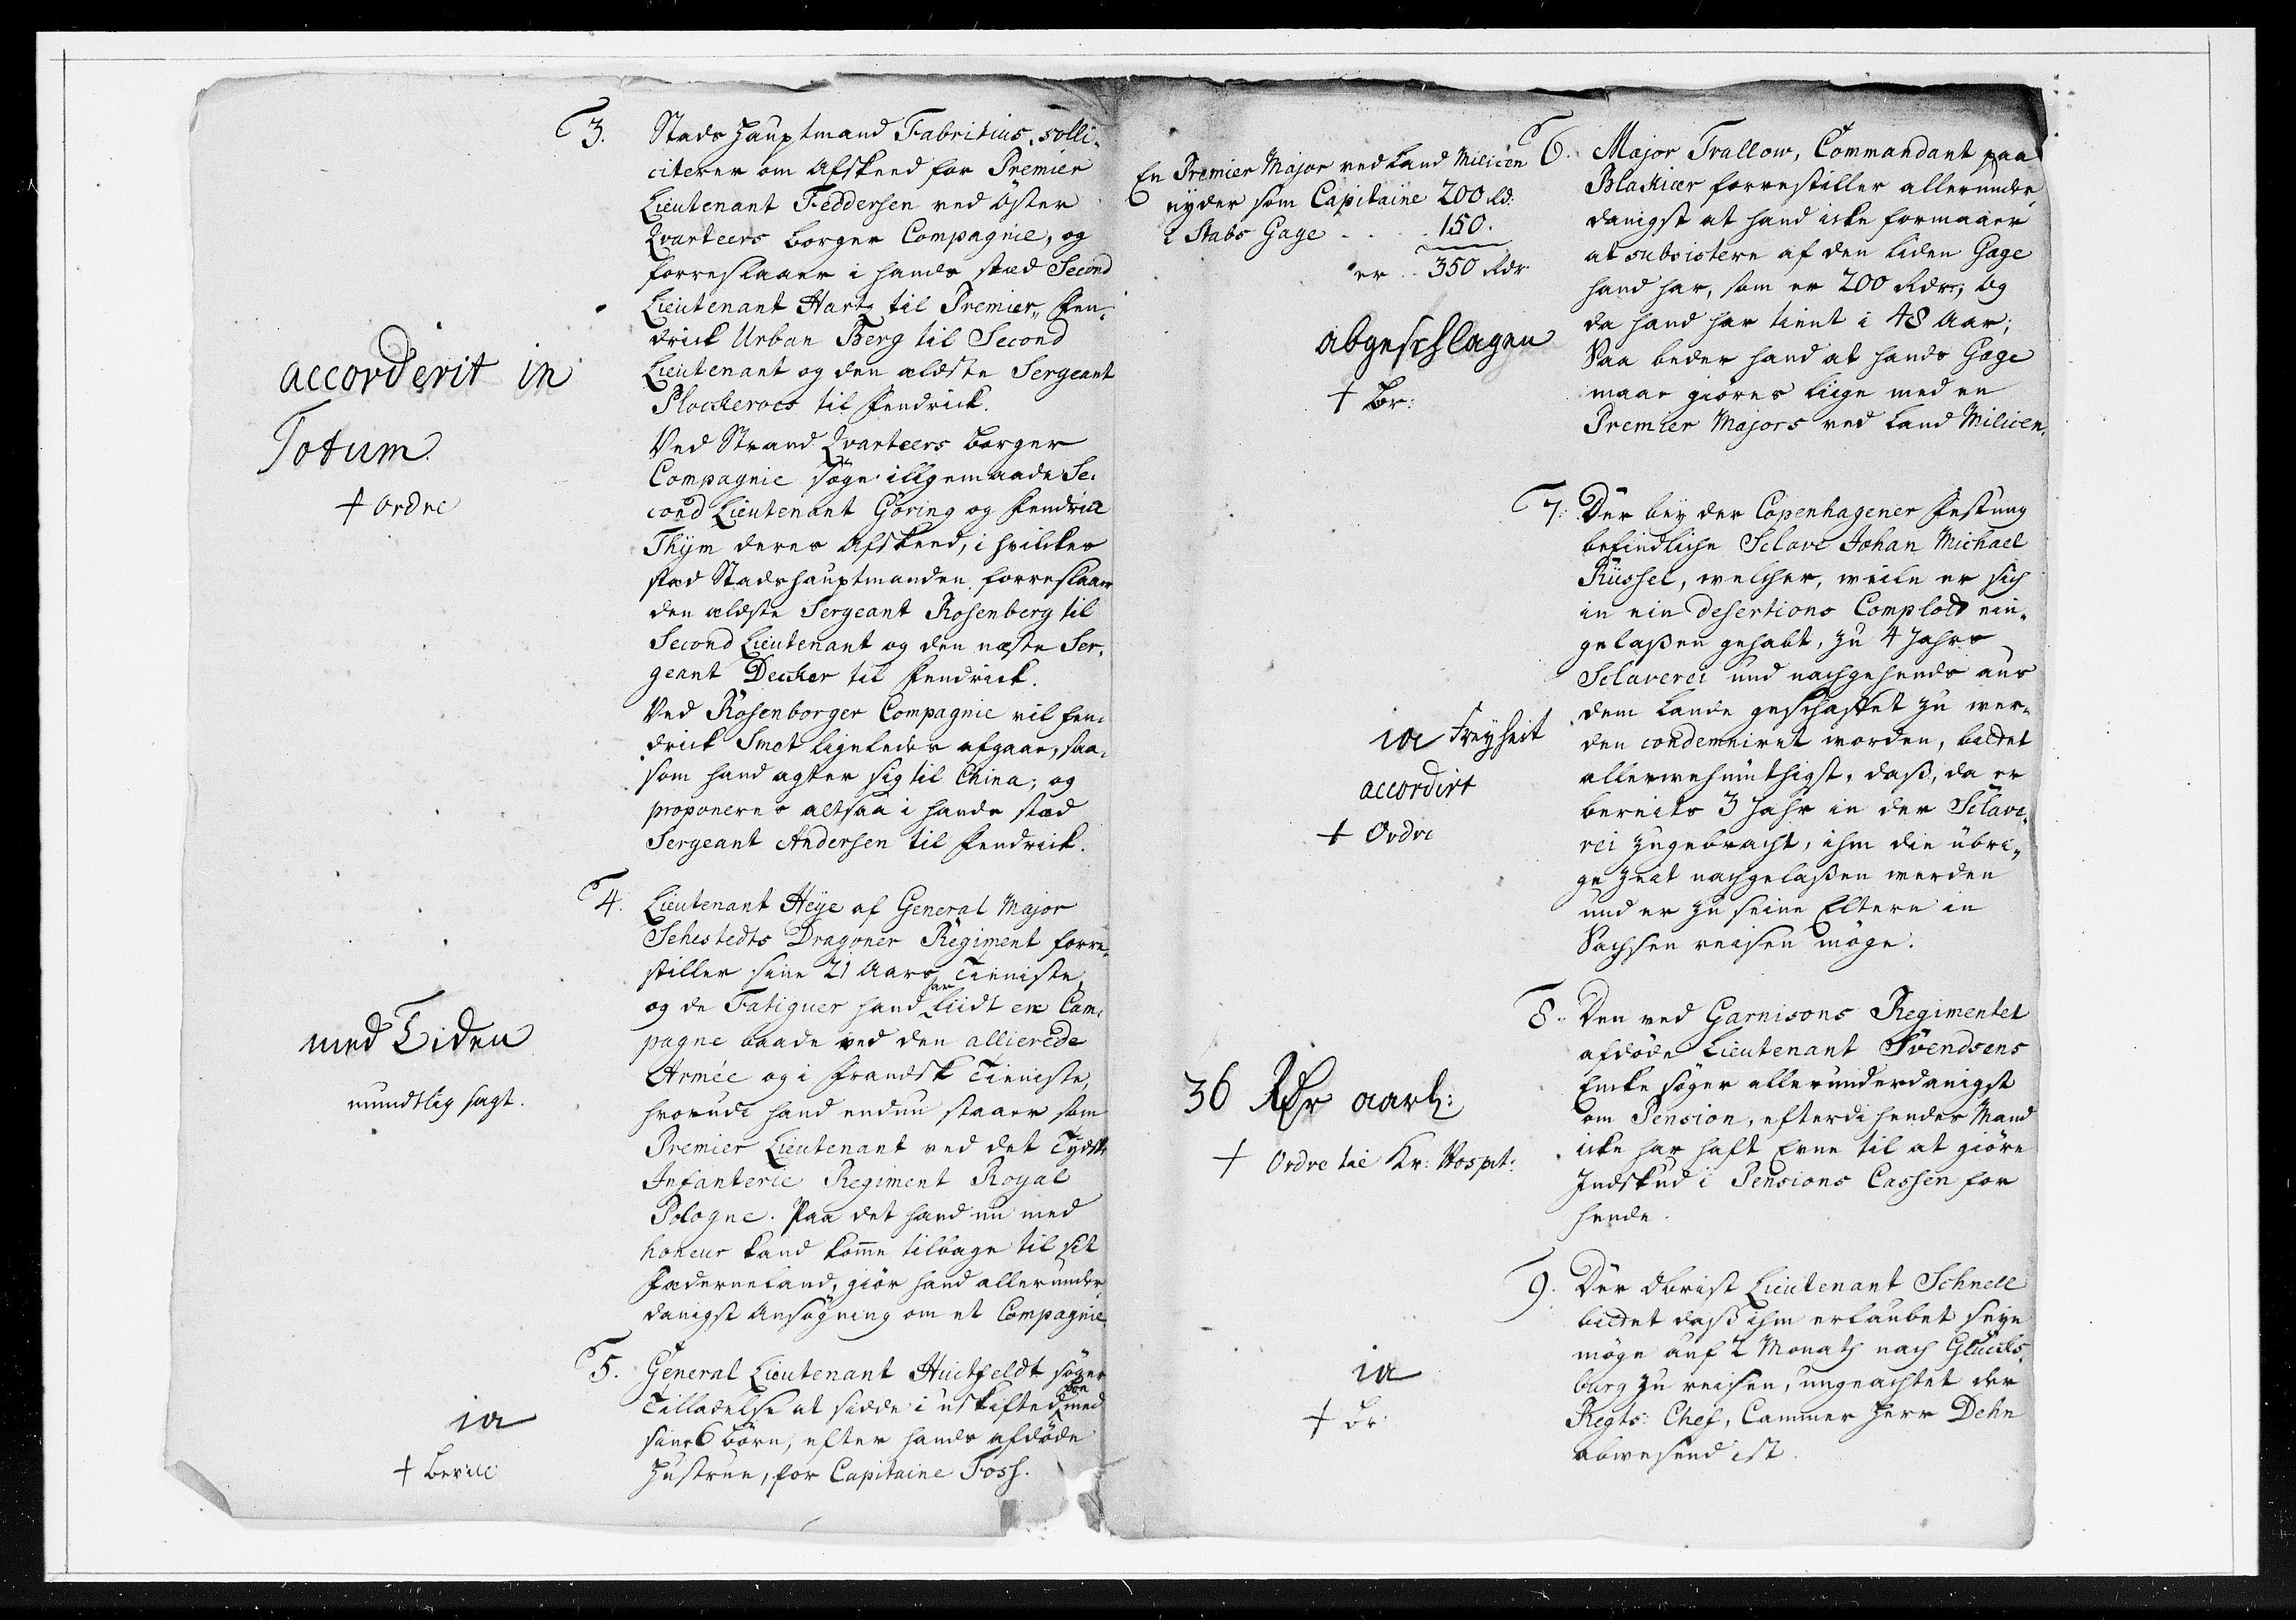 3. Stads Hauptmand Fabritius, solli-
citerer om Afskeed for Premier
Lieutenant Feddersen ved Öster
Qvarteers borger Compagnie, og
forreslaaer i hands stæd Second
Lieutenant Hartz til Premier, Fen-
drick Urban Berg til Second
Lieutenant og den ældste Sergeant
Plockeroes til Fendrick.
Ved Strand Qvarteers borger
Compagnie söge illigemaade Se-
cond Lieutenant Göring og Fendrick
Thÿm deres Afskeed, i hvilckes
stæd Stadshauptmanden forreslaaer
den ældste Sergeant Rosenberg til
Second Lieutenant og den næste Ser-
geant Decker til Fendrick.
Ved Rosenborger Compagnie vil Fen-
drick Smot ligeledes afgaae, saa-
som hand agter sig til China, og
proponeres altsaa i hands stæd
Sergeant Andersen til Fendrick.
accorderit in
Totum.
+ Ordre
4. Lieutenant Heÿe af General Major
Sehestedts Dragoner Regiment forre-
stiller sine 21 Aars Tieniste,
og de Fatiguer hand har Liidt en Cam-
pagne baade ved den allierede
Armée og i Frandsk Tieniste,
hvorudi hand endnu staaer som
Premier Lieutenant ved det Tydske
Infanterie Regiment Royal
Pologne. Paa det hand nu med
honeur kand komme tilbage til sit
Fæderneland, giör hand allerunder-
danigst Ansögning om et Compagnie.
med Tiden
mundtlig sagt.
5. General Lieutenant Huitfeldt söger
Tilladelse at sidde i uskifted boe med
sine 6 börn, efter hands afdöde
Hustrue, for Capitaine Foss.
ia
+ Bevill:
6. Major Trallow, Commandant paa
Blakiær forrestiller allerunder-
danigst at hand icke formaaer
at subsistere af den liden Gage
hand har, som er 200 Rdr, og
da hand har tient i 48 Aar;
Saa beder hand at hands Gage
maae giöres liige med en
Premier Majors ved Land Milicen.
En Premier Major ved Land Milicen
nyder som Capitaine 200 Rd:
i Stabs Gage . . . 150.
er . . 350 Rdr
abgeschlagen
+ Br:
7. Der bey der Copenhagener Festung
befindliche Sclave Johan Michael
Rüssel, welcher, weile er sich
in ein desertions Complott ein-
gelaßen gehabt, zu 4 Jahrs
Sclaverei und nachgehends aus
dem Lande geschaffet zu wer-
den condemniret worden, bittet
allerwehmüthigst, daß, da er
bereits 3 Jahr in der Sclave-
rei zugebracht, ihm die übri-
ge Zeit nachgelaßen werden
und er zu seine Eltern in
Sachsen reisen möge.
ia Freyheit
accordirt
+ Ordre
8. Den ved Garnisons Regimentet
afdöde Lieutenant Svendsens
Encke söger allerunderdanigst
om Pension, efterdi hendes Mand
icke har haft Evne til at giöre
Indskud i Pensions Cassen for
hende.
36 Rdr aarl:
+ Ordre til Kr: Hospit:
9. Der Obrist Lieutenant Schnell
bittet daß ihm erlaubet seyn
möge auf 2 Monath nach Glücks-
burg zu reisen, ungeachtet der
Regts: Chef, Cammer Herr Dehn
abwesend ist.
ia
+ Br: